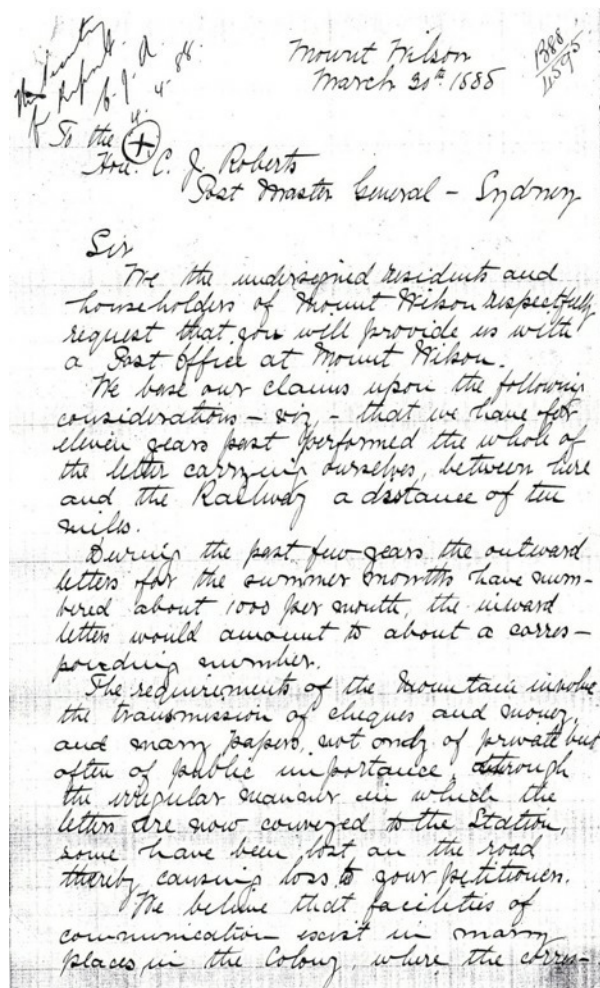 Mount Wilson
March 30th 1888
1888
4595
4.4.88.
To the
Hon. C. J. Roberts
Post Master General - Sydney
Sir
We the undersigned residents and
householders of Mount Wilson respectfully
request that you will provide us with
a Post Office at Mount Wilson.
We base our claims upon the following
considerations - viz - that we have for
eleven years past performed the whole of
the letter carrying ourselves, between here
and the Railway a distance of ten
miles.
During the past few years the outward
letters for the summer months have num-
bered about 1000 per month, the inward
letters would amount to about a corres-
ponding number.
The requirements of the Mountain involve
the transmission of cheques and money,
and many papers, not only of private but
often of public importance, through
the irregular manner in which the
letters are now conveyed to the Station,
some have been lost on the road
thereby causing loss to your petitioners.
We believe that facilities of
communication exist in many
places, in the Colony, where the corres-